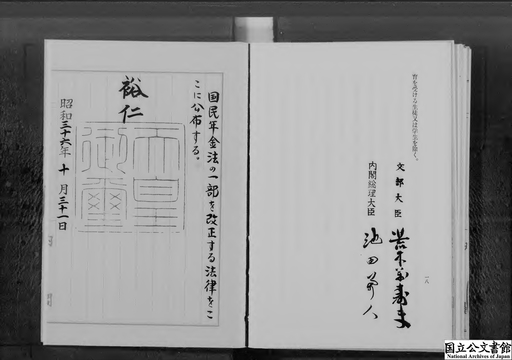 育を受ける生徒又は学生を除く。
文部大臣 荒木萬壽夫
内閣総理大臣 池田勇人
一八
国民年金法の一部を改正する法律をこ
こに公布する。
裕仁
天皇
御璽
昭和三十六年十月三十一日
国立公文書館
National Archives of Japan